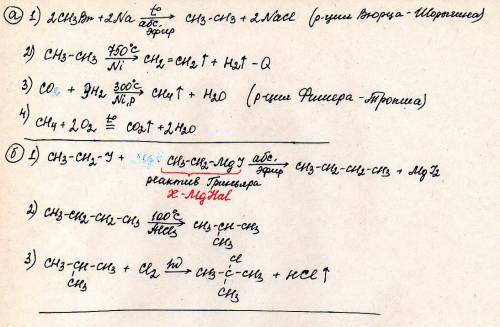 а) 1) 2CH3Br + 2Na t° абс. эфир → CH3-CH3 + 2NaCl (р-ция Вюрца-Шорыгина)
2) CH3-CH3 750°C Ni → CH2=CH2↑ + H2↑ - Q
3) CO + 3H2 300°C Ni, p → CH4↑ + H2O (р-ция Фишера-Тропша)
4) CH4 + 2O2 t° = CO2↑ + 2H2O
б) 1) CH3-CH2-I + CH3-CH2-MgI абс. эфир → CH3-CH2-CH2-CH3 + MgI2
реактив Гриньяра
X-MgHal
2) CH3-CH2-CH2-CH3 100°C AlCl3 → CH3-CH-CH3
CH3
Cl
3) CH3-CH-CH3 + Cl2 hν → CH3-C-CH3 + HCl↑
CH3 CH3